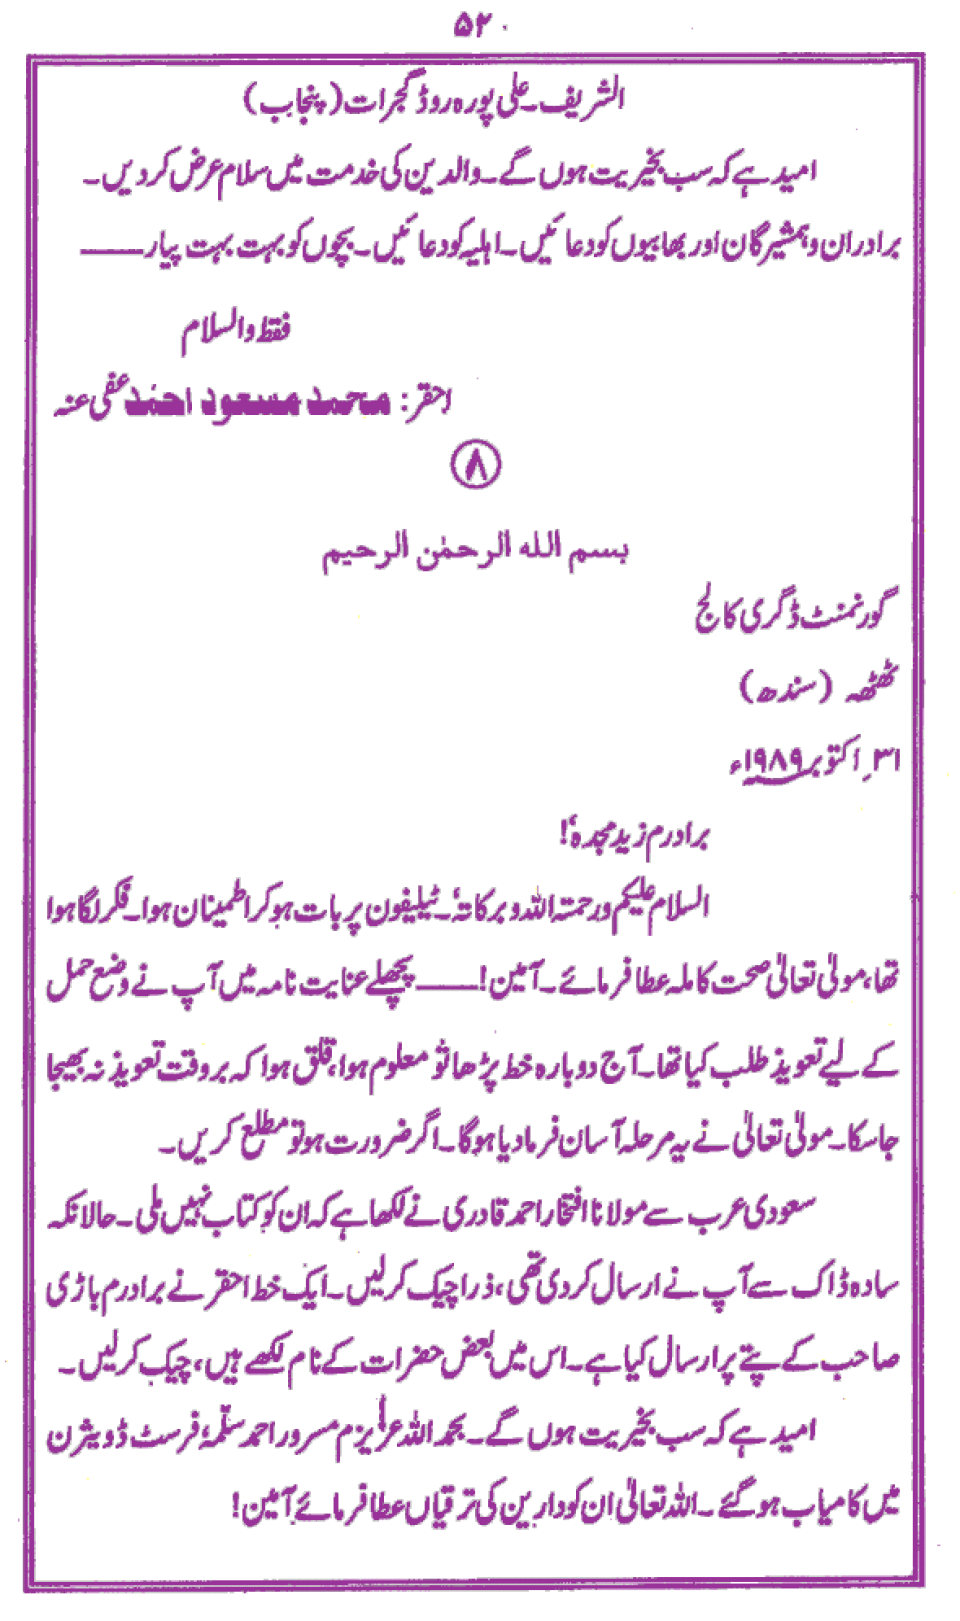 ۵۲۰
الشریف۔علی پورہ روڈ گجرات (پنجاب)
امید ہے کہ سب بخیریت ہوں گے۔والدین کی خدمت میں سلام عرض کردیں۔
برادران و ہمشیرگان اور بھابیوں کو دعائیں۔اہلیہ کو دعائیں۔بچوں کو بہت بہت پیار——
فقط والسلام
احقر: محمد مسعود احمد عفی عنہ
۸
بسم اللہ الرحمٰن الرحیم
گورنمنٹ ڈگری کالج
ٹھٹھہ (سندھ)
۳۱؍اکتوبر ۱۹۸۹ء
برادرم زید مجدہٗ!
السلام علیکم ورحمتہ اللہ وبرکاتہٗ۔ٹیلیفون پر بات ہو کر اطمینان ہوا۔فکر لگا ہوا
تھا،مولیٰ تعالیٰ صحت کاملہ عطا فرمائے۔آمین!——پچھلے عنایت نامہ میں آپ نے وضع حمل
کے لیے تعویذ طلب کیا تھا۔آج دوبارہ خط پڑھا تو معلوم ہوا،قلق ہوا کہ بروقت تعویذ نہ بھیجا
جاسکا۔مولیٰ تعالیٰ نے یہ مرحلہ آسان فرمادیا ہوگا۔اگر ضرورت ہو تو مطلع کریں۔
سعودی عرب سے مولانا افتخار احمد قادری نے لکھا ہے کہ ان کو کتاب نہیں ملی۔حالانکہ
سادہ ڈاک سے آپ نے ارسال کردی تھی،ذرا چیک کرلیں۔ایک خط احقر نے برادرم باڑی
صاحب کے پتے پر ارسال کیا ہے۔اس میں بعض حضرات کے نام لکھے ہیں،چیک کرلیں۔
امید ہے کہ سب بخیریت ہوں گے۔بحمد اللہ عزیزم مسرور احمد سلّمہٗ فرسٹ ڈویثرن
میں کامیاب ہوگئے۔اللہ تعالیٰ ان کو دارین کی ترقیاں عطا فرمائے آمین!